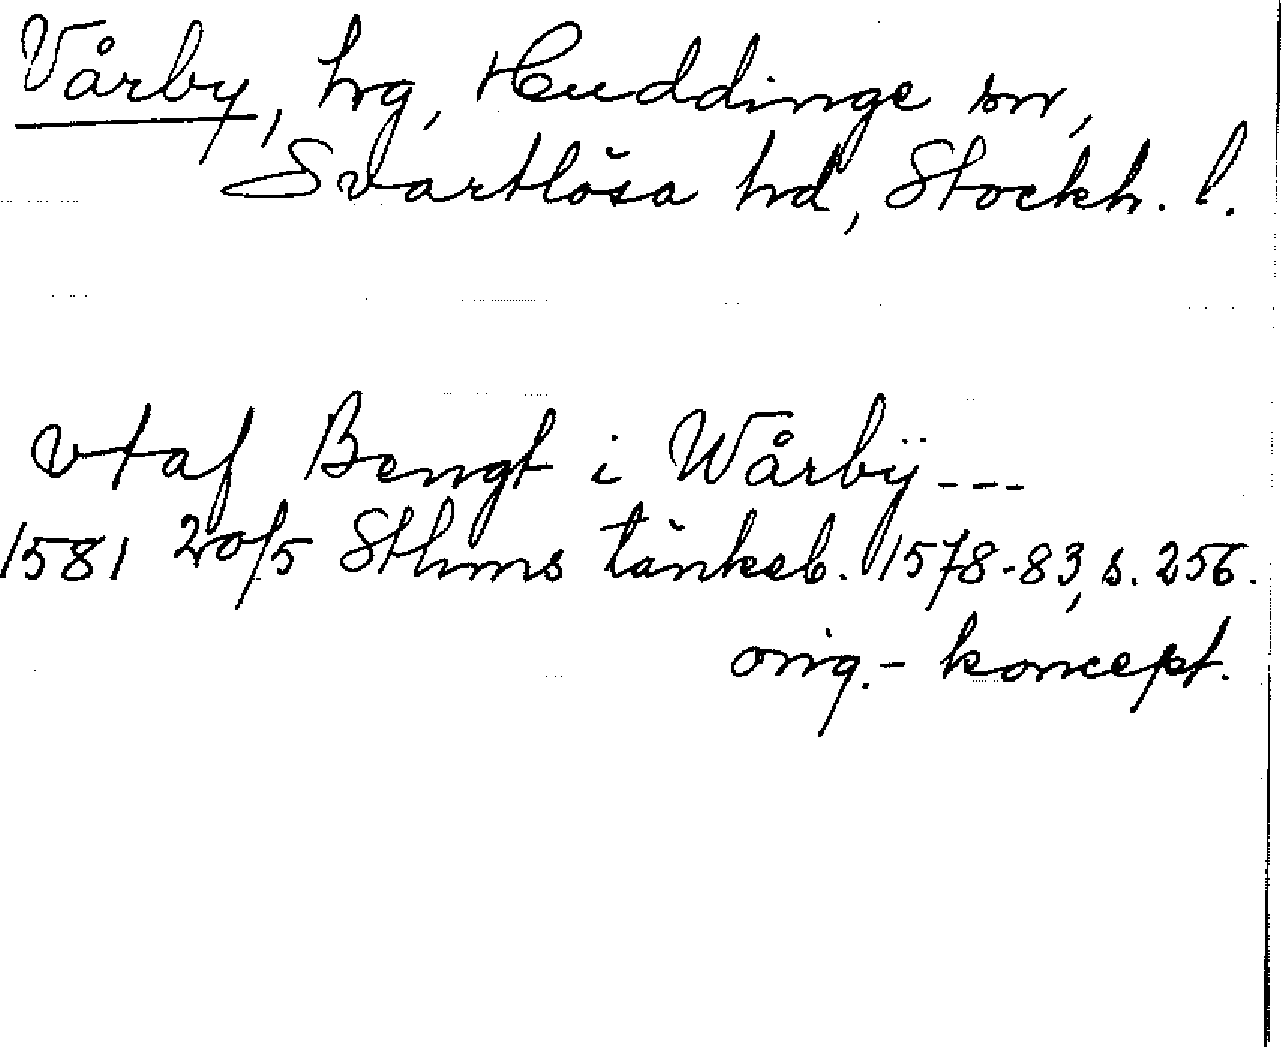 Vårby, hrg, Huddinge sn,
Svartlösa hd, Stockh. l.
vtaf Bengt i Wårbÿ---
1581 20/5 Sthms tänkeb. 1578-83, s. 256.
orig.- koncept.